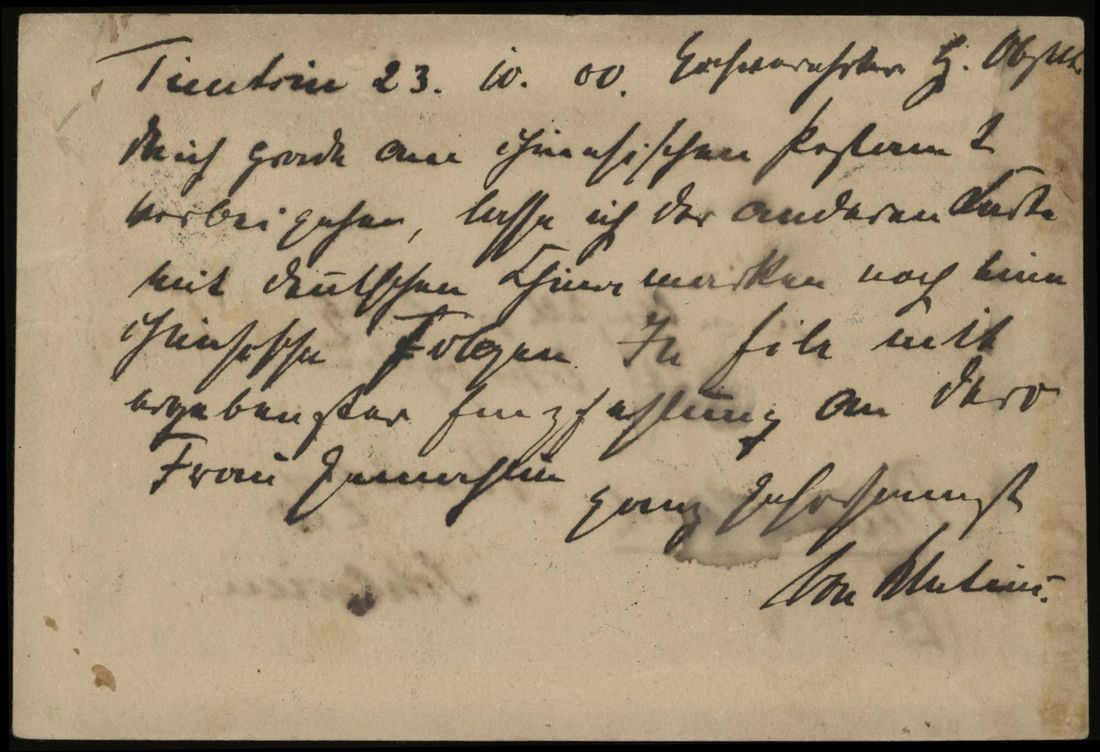 Tientsin 23. 10. 00. Hochverehrter H. Obst.
Da ich grade am chinesischen Postamt
vorbei gehe, lasse ich der anderen Karte
mit deutschen Chinamarken noch eine
chinesische Folgen. In Eile mit
ergebenster Empfehlung an Dero
Frau Gemahlin
ganz gehorsamst
von Mutius.